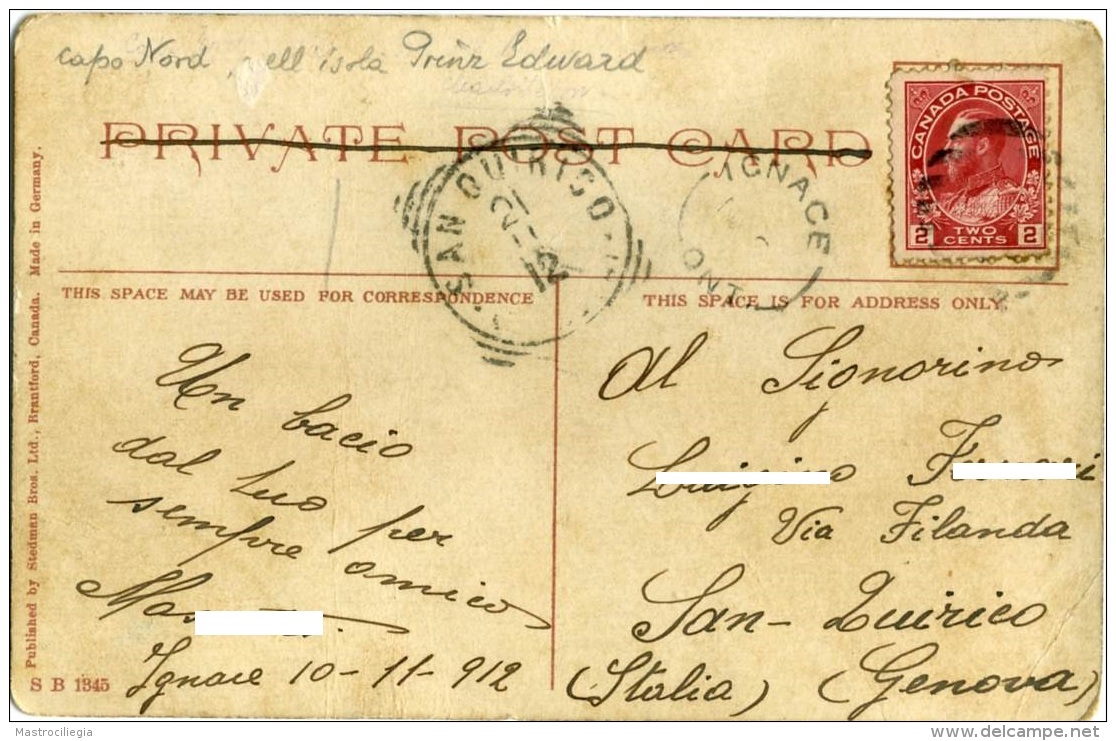 capo Nord, nell'isola Prinz Edward
PRIVATE POST CARD
CANADA POSTAGE
2 TWO CENTS 2
SAN QUIRICO
21
12
IGNACE
ONT
THIS SPACE MAY BE USED FOR CORRESPONDENCE
THIS SPACE IS FOR ADDRESS ONLY.
Un bacio
dal tuo per
sempre amico
Ignace 10-11-912
Al Signorino
Via Filanda
San-Quirico
(Italia) (Genova)
Published by Stedman Bros. Ltd., Brantford, Canada. Made in Germany.
S B 1345
Mastrociliegia
delcampe.net